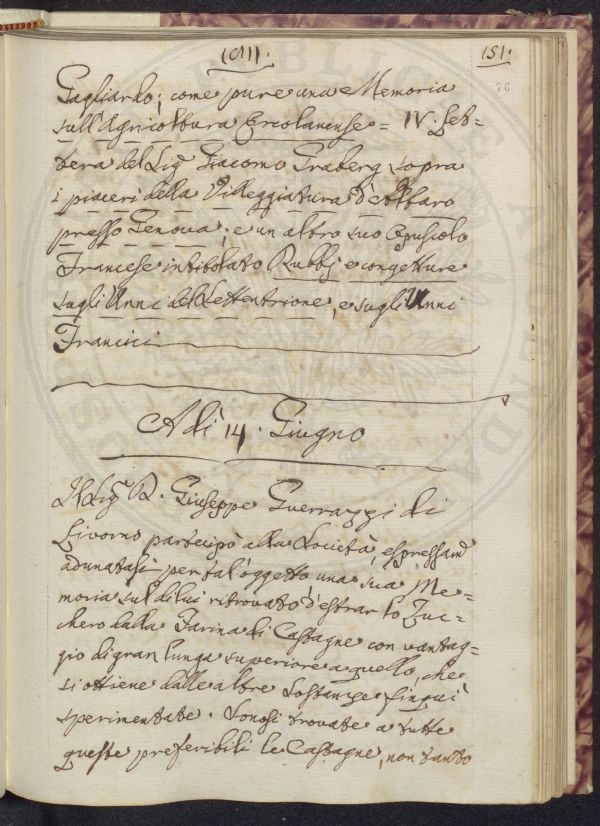 (CLI).
151.
76
Gagliardo; come pure una Memoria
sull'Agricoltura Ercolanense = IV. Let-
tera del Sig.r Giacomo Graberg sopra
i piaceri della Villeggiatura d'Albaro
presso Genova, e un altro suo Opuscolo
Francese intitolato e congetture
sugli Unni del Settentrione, e sugli Unni
Francici
A dì 14. Giugno
Il Sig.r D. Giuseppe Guerrazzi di
Livorno partecipò alla Società, espressam.
adunatasi per tal'oggetto una sua Me-
moria sul di lui ritrovato d'estrar lo Zuc-
chero dalla Farina di Castagne con vantag-
gio di gran lunga superiore a quello, che
si ottiene dalle altre sostanze finquì
sperimentate. Sonosi trovate a tutte
queste preferibili le Castagne, non tanto